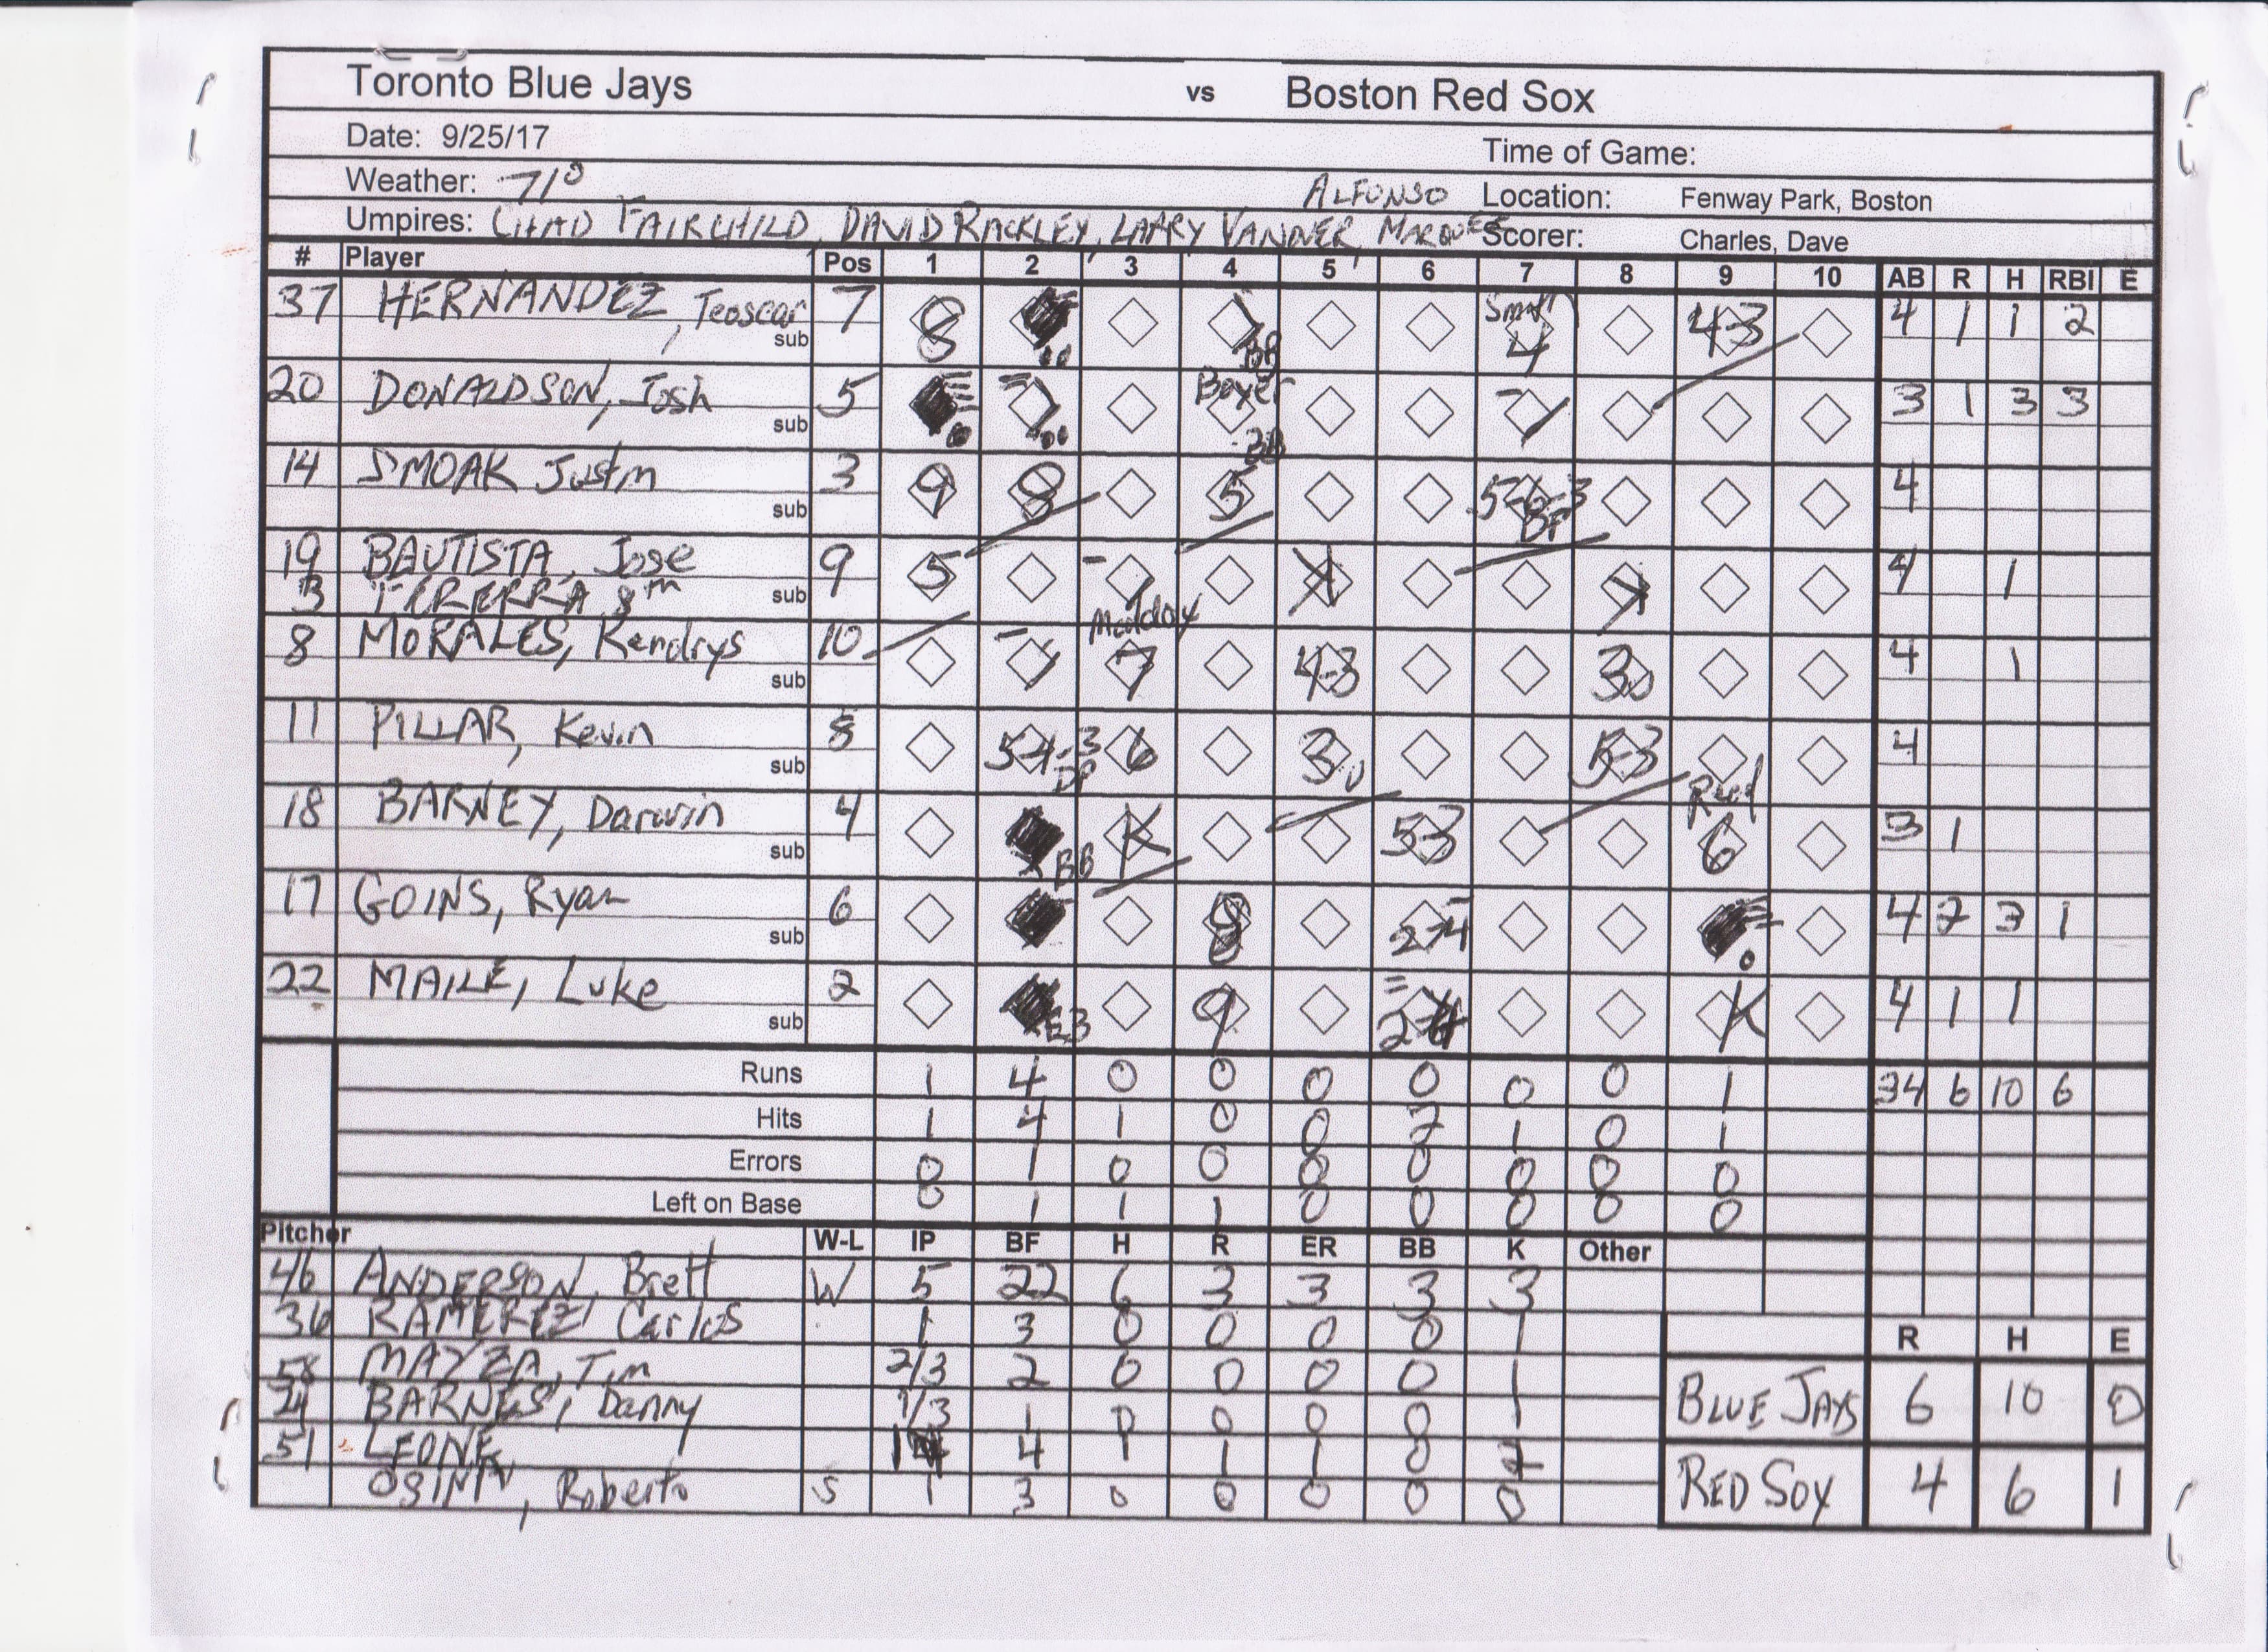 Toronto Blue Jays vs Boston Red Sox
Date: 9/25/17
Time of Game:
Weather: 71° ALFONSO Location: Fenway Park, Boston
Umpires: CHAD FAIRCHILD, DAVID RACKLEY, LARRY VANOVER, MARQUEZ Scorer: Charles, Dave
# Player Pos 1 2 3 4 5 6 7 8 9 10 AB R H RBI E
37 HERNANDEZ, Teoscar 7 8 BB 4 43 4 1 1 2
sub
20 DONALDSON, Josh 5 Boyer BB 3 1 3 3
sub
14 SMOAK Justin 3 9 8 5 4
sub
19 BAUTISTA, Jose 9 5 K K 4 1
sub
8 MORALES, Kendrys 10 7 43 3U 4 1
sub
11 PILLAR, Kevin 8 54-3 DP 6 3U 53 4
sub
18 BARNEY, Darwin 4 BB K 53 6 3 1
sub
17 GOINS, Ryan 6 8 2-4 4 2 3 1
sub
22 MAILE, Luke 2 E3 9 K 4 1 1
sub
Runs 1 4 0 0 0 0 0 0 1 34 6 10 6
Hits 1 4 1 0 0 2 1 0 1
Errors 0 1 0 0 0 0 0 0 0
Left on Base 0 1 1 1 0 0 0 0 0
Pitcher W-L IP BF H R ER BB K Other
46 ANDERSON, Brett W 5 22 6 3 3 3 3
36 RAMEREZ, Carlos 1 3 0 0 0 0 1
R H E
58 MAYZA, Tim 2/3 2 0 0 0 0 1
BARNES, Danny 1/3 1 0 0 0 0 1
BLUE JAYS 6 10 0
51 LEONE 1 4 1 1 1 0
, Roberto S 1 3 0 0 0 0 0
RED SOX 4 6 1